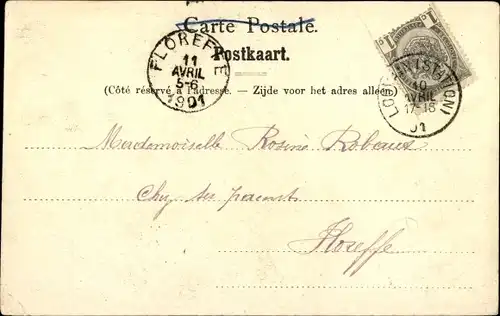 Carte Postale.
Postkaart.
(Côté réservé à l'adresse. — Zijde voor het adres alleen)
FLOREFFE
11
AVRIL
5-6
1901
(STATION)
10
AVRIL
17-18
01
1 1
Merdemoiselle Rosine Robeaux
Chez ses parents
Floreffe